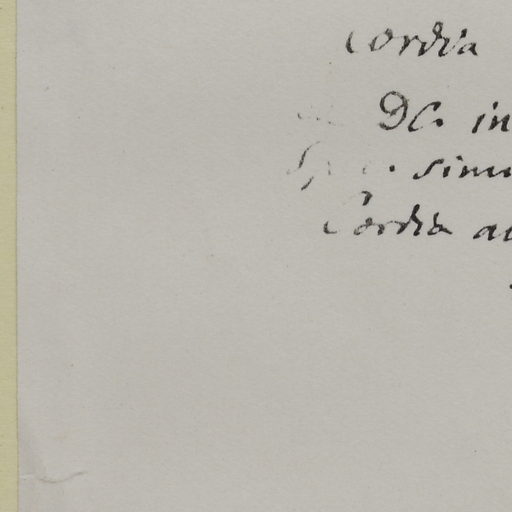 Cordia
DC. in
simu
Cordia au